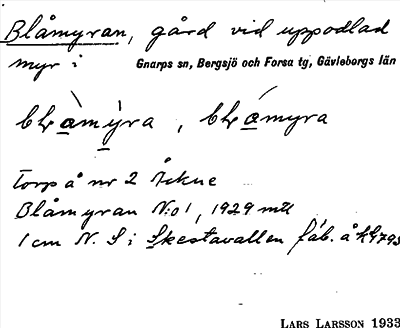 Blåmyran, gård vid uppodlad
myr i Gnarps sn, Bergsjö och Forsa tg, Gävleborgs län
Torp å nr 2 Åkne
Blåmyran No 1, 1929 mtl
1 cm N. S i Skestavallen fäb. å
LARS LARSSON 1933